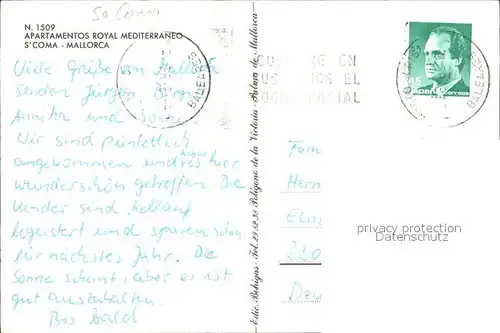 Sa Coma
N. 1509
APARTAMENTOS ROYAL MEDITERRANEO
S'COMA - MALLORCA
Viele Grüße von Mallorca
senden Jürgen, Birgit,
Annika und
Wir sind pünktlich
angekommen und haben
es hier
wunderschön getroffen. Die
Kinder sind hellauf
begeistert und sparen schon
für nächstes Jahr. Die
Sonne scheint, aber es ist
gut auszuhalten.
Bis bald
Edic. Bohigas
Polígono de la Victoria - Palma de Mallorca
BALEARES
EN
EL
POSTAL
45
correos
BALEARES
Fam
Herr
Elm
220
Deu
privacy protection
www.ansichtskarten-center.de